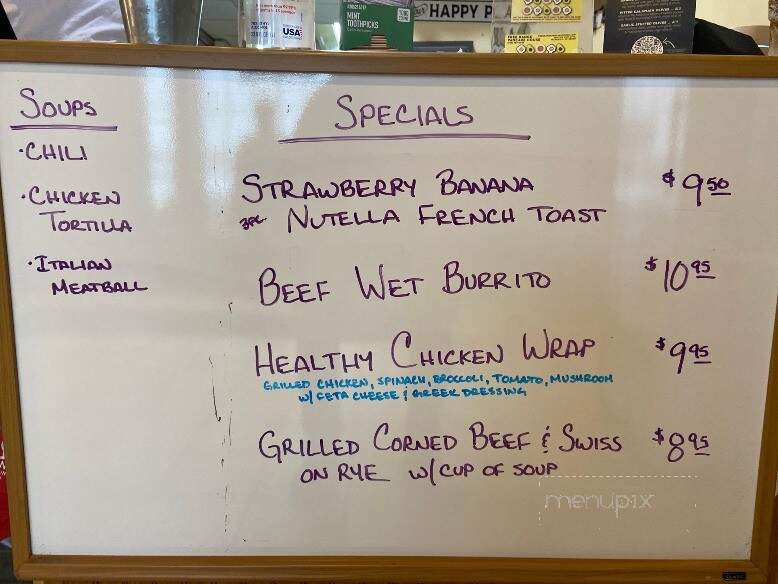 MINT
TOOTHPICKS
USA
HAPPY P
SOUPS
·CHILI
·CHICKEN
TORTILLA
·ITALIAN
MEATBALL
SPECIALS
STRAWBERRY BANANA $9.50
3PC NUTELLA FRENCH TOAST
BEEF WET BURRITO $10.95
HEALTHY CHICKEN WRAP $9.95
GRILLED CHICKEN, SPINACH, BROCCOLI, TOMATO, MUSHROOM
W/ FETA CHEESE & GREEK DRESSING
GRILLED CORNED BEEF & SWISS $8.95
ON RYE W/CUP OF SOUP
menupix